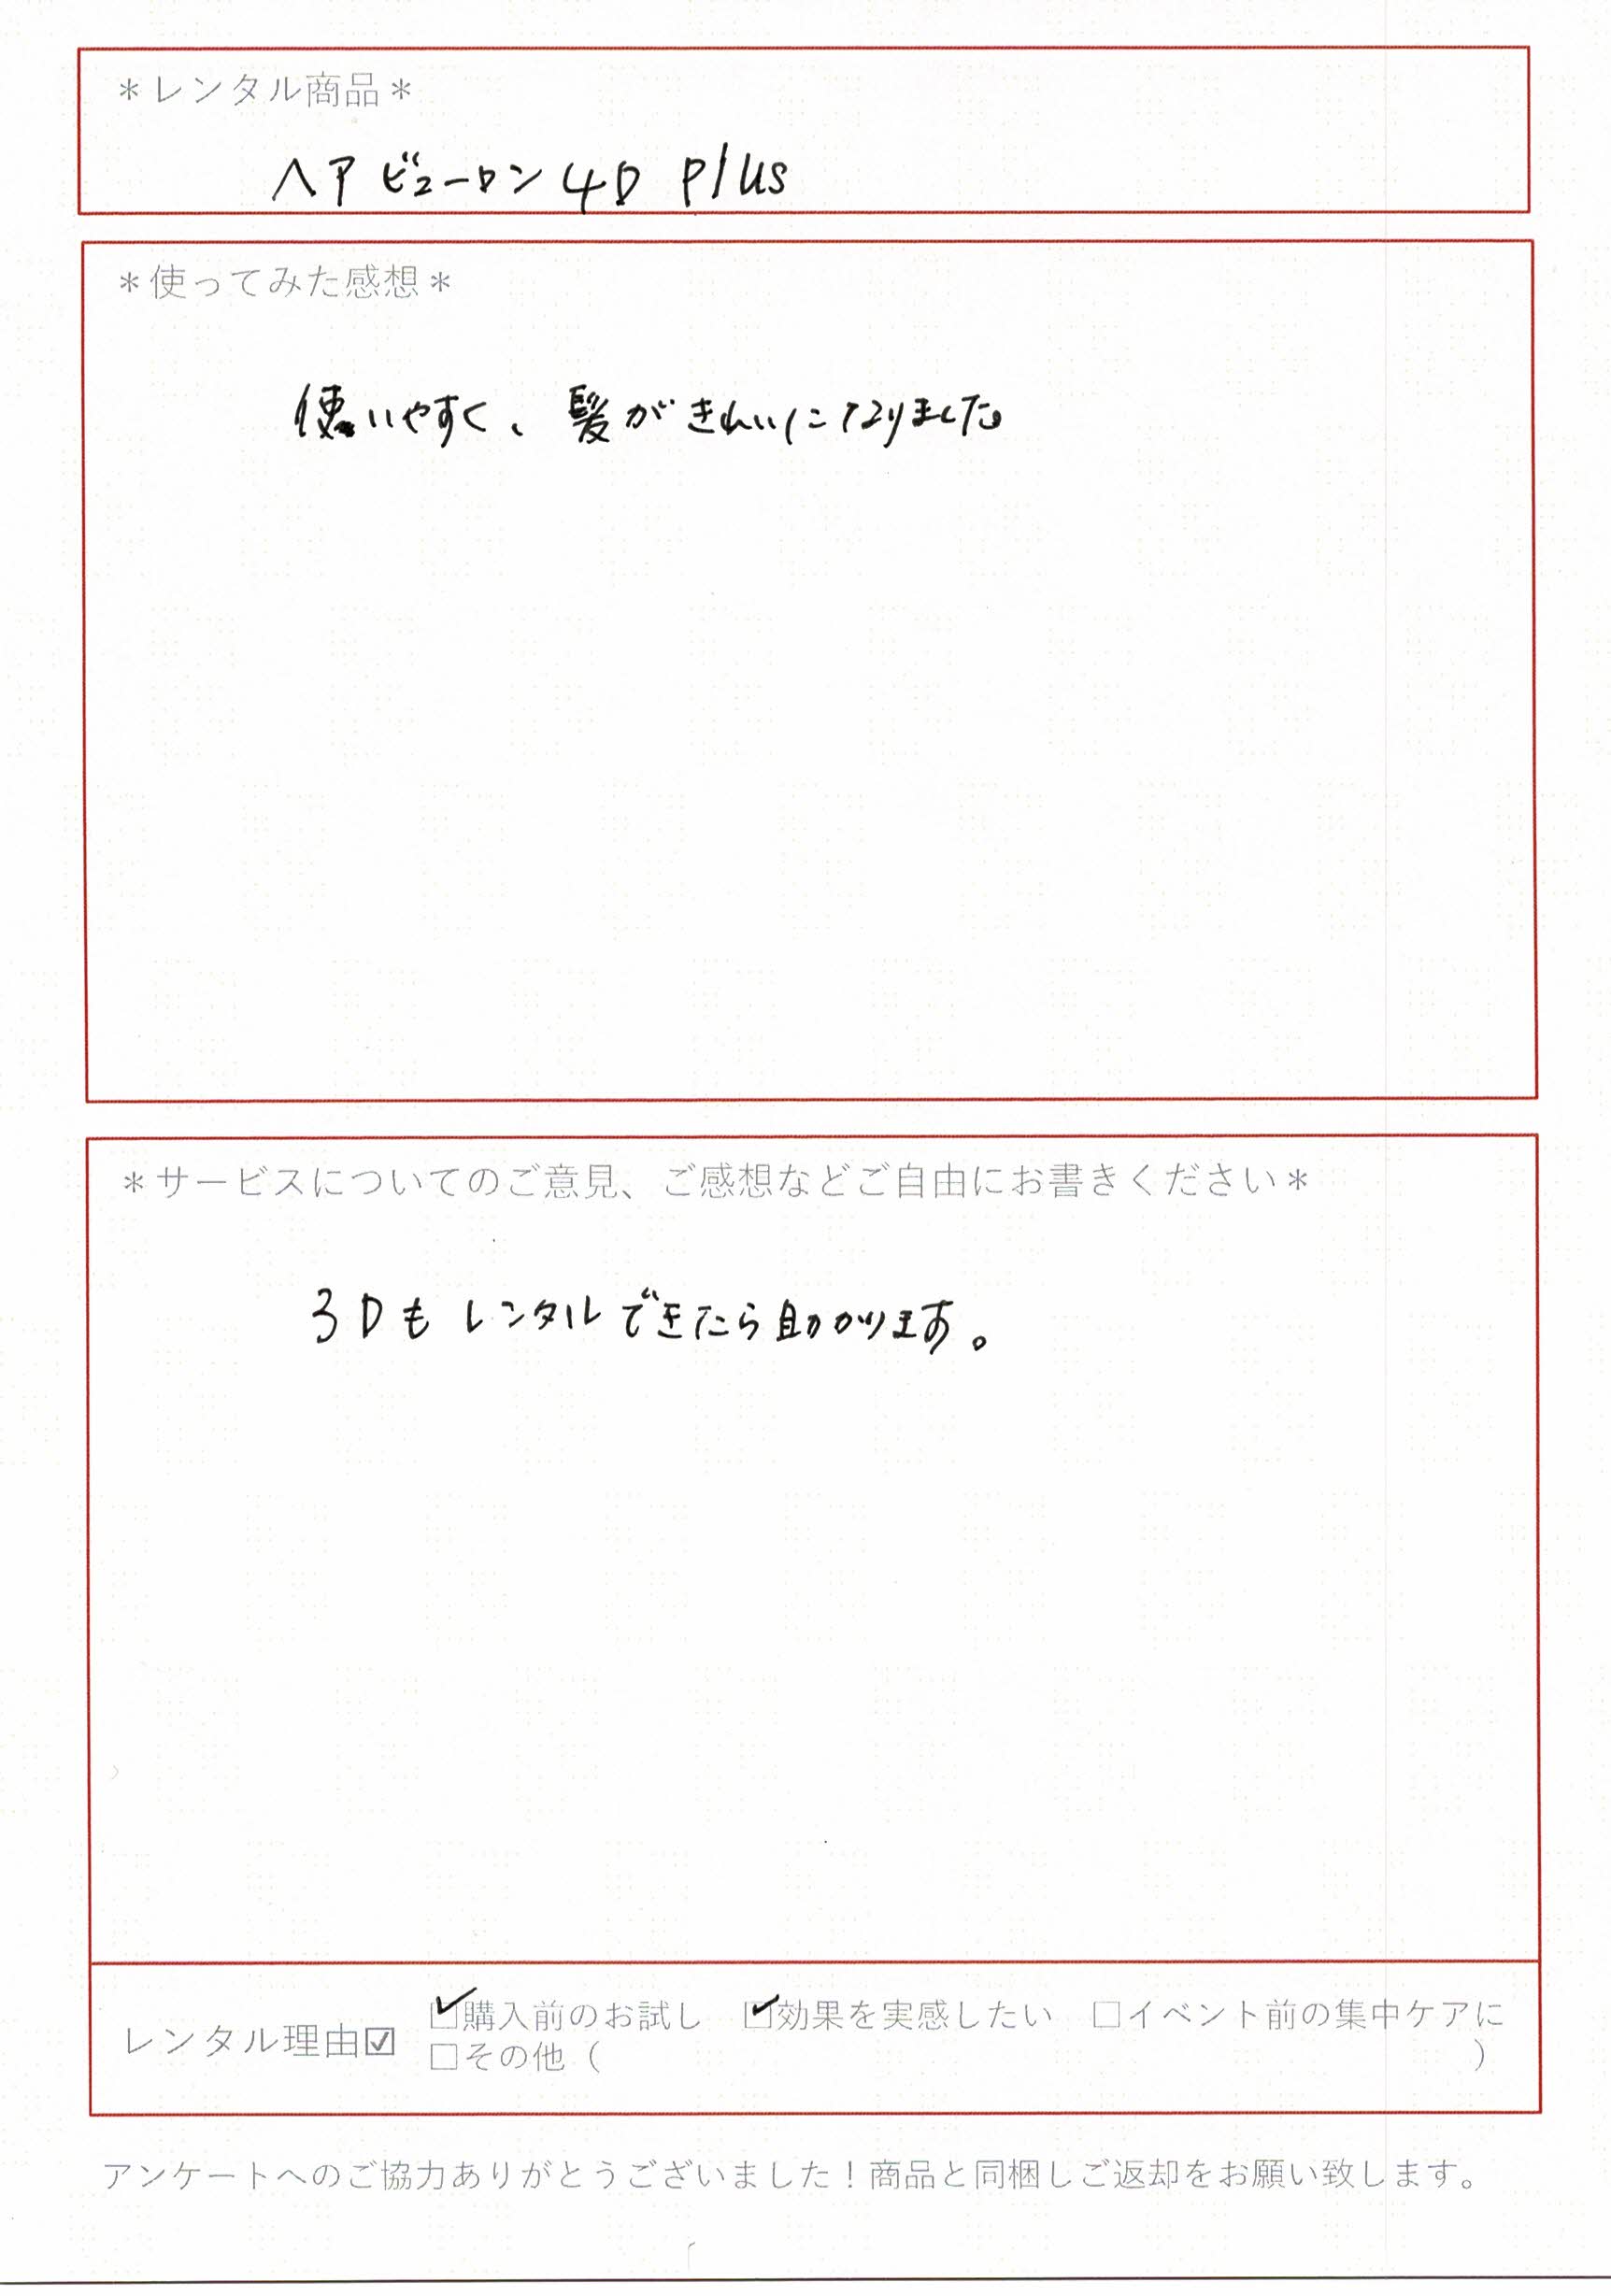 ＊レンタル商品＊
ヘアビューロン4D plus
＊使ってみた感想＊
使いやすく、髪がきれいになりました。
＊サービスについてのご意見、ご感想などご自由にお書きください＊
3Dもレンタルできたら助かります。
☑購入前のお試し ☑効果を実感したい □イベント前の集中ケアに
レンタル理由☑
□その他（ ）
アンケートへのご協力ありがとうございました！商品と同梱しご返却をお願い致します。